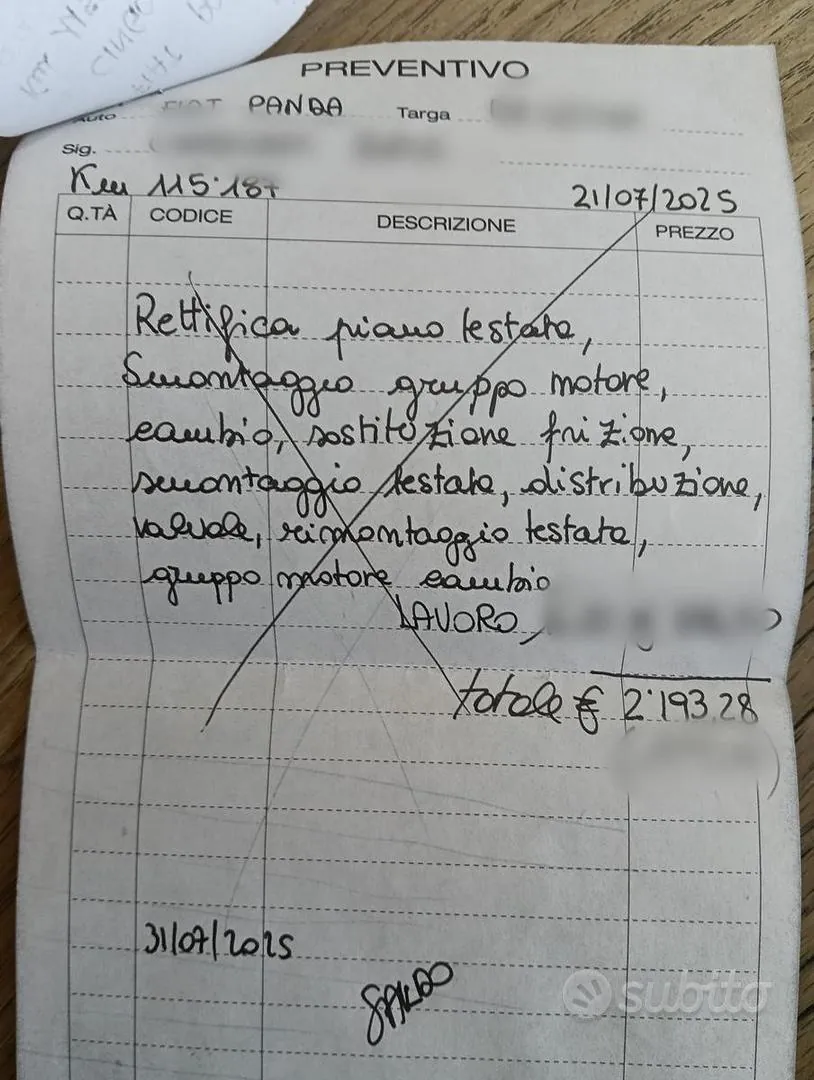 PREVENTIVO
Auto FIAT PANDA Targa
Sig.
Km 115.187 21/07/2025
Q.TÀ CODICE DESCRIZIONE PREZZO
Rettifica piano testata,
Smontaggio gruppo motore,
cambio, sostituzione frizione,
smontaggio testata, distribuzione,
valvole, rimontaggio testata,
gruppo motore cambio
LAVORO,
totale € 2'193,28
31/07/2025
SALDO
subito